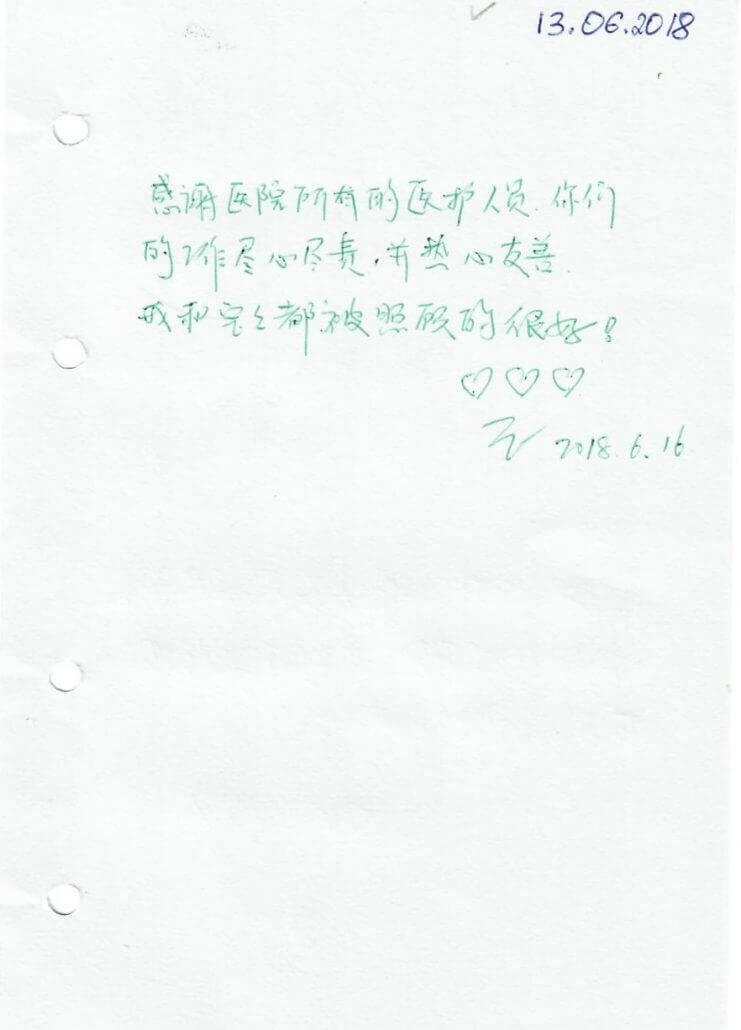 13.06.2018
感谢医院所有的医护人员.你们
的工作尽心尽责,并热心友善.
我和宝宝都被照顾的很好!
2018.6.16